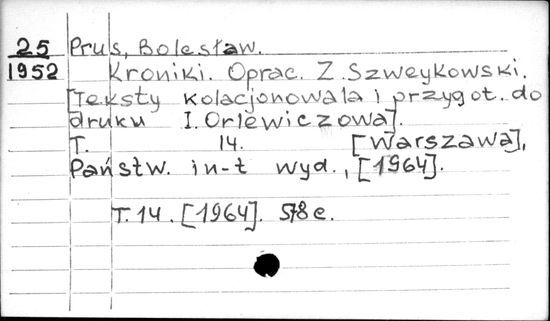 25 Prus, Bolesław.
1952 Kroniki. Oprac. Z. Szweykowski.
[Teksty kolacjonowała i przygot. do
druku I. Orlewiczowa].
T. 14. [Warszawa],
Państw. in-t wyd., [1964].
T. 14. [1964]. 578 с.